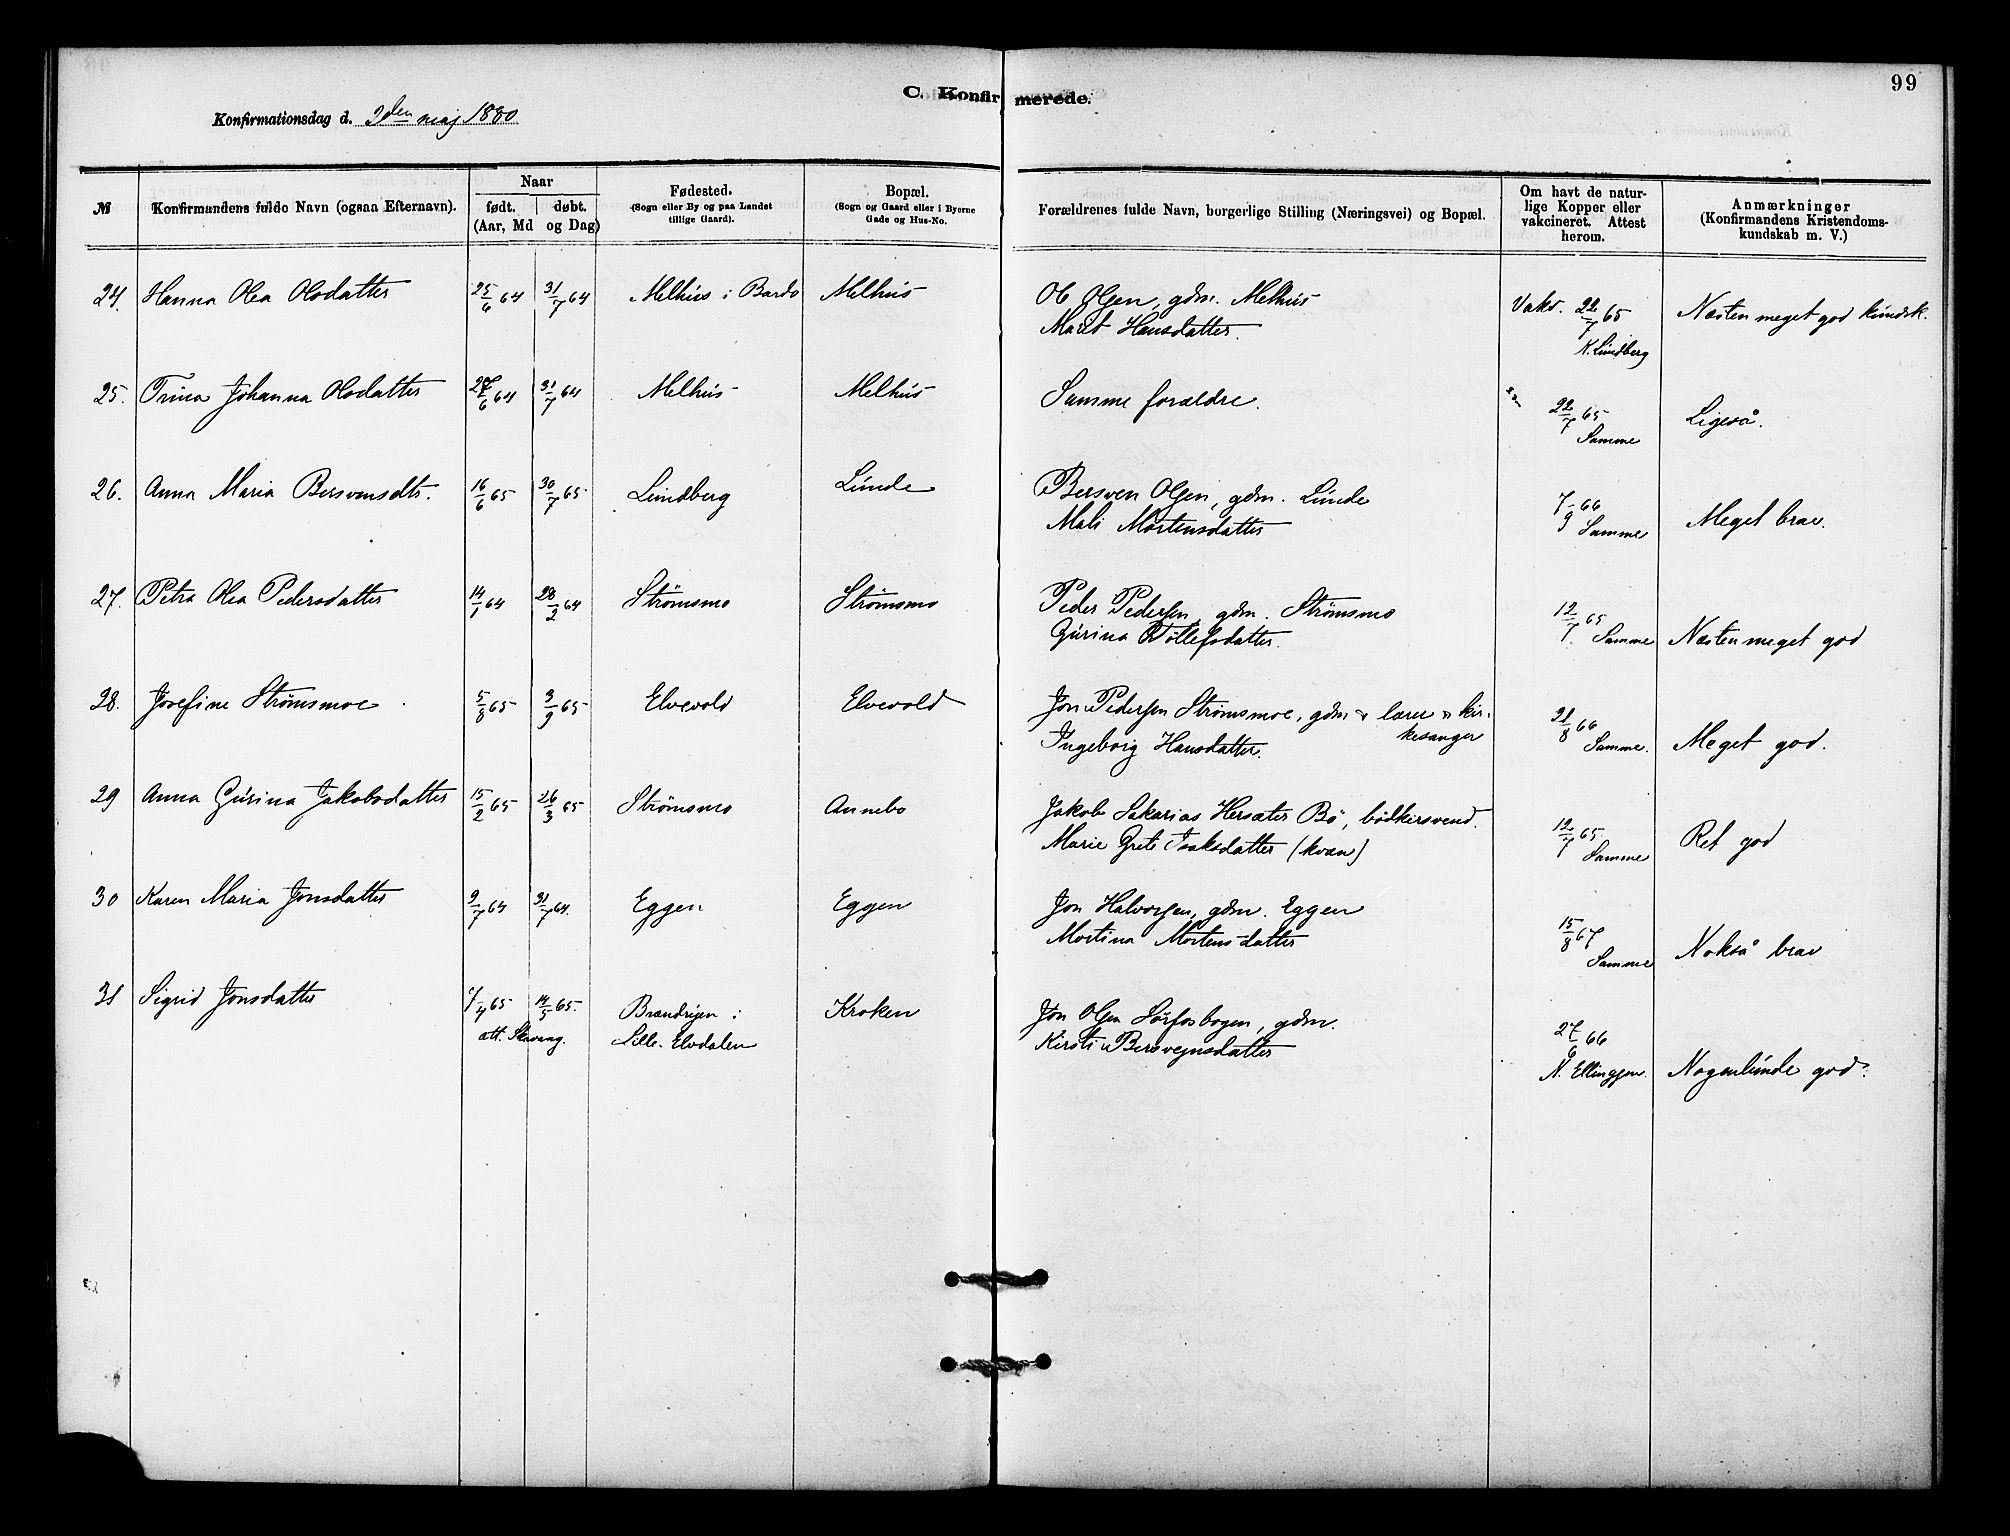 99
C. Konfirmerede.
Konfirmationsdag d. 2den maj 1880
№ Konfirmandens fulde Navn (ogsaa Efternavn). Naar født. døbt. (Aar, Md og Dag) Fødested. (Sogn eller By og paa Landet tillige Gaard). Bopæl. (Sogn og Gaard eller i Byerne Gade og Hus-No. Forældrenes fulde Navn, borgerlige Stilling (Næringsvei) og Bopæl. Om havt de naturlige Kopper eller vakcineret. Attest herom. Anmærkninger (Konfirmandens Kristendomskundskab m. V.)
24. Hanna Olea Olsdatter 25/6 64 31/7 64 Melhus i Bardo Melhus Ol Olsen, gdm. Melhus Vakc. 22/7 65 Næsten meget god kundsk.
Marit Hansdatter. K. Lundberg
25. Trina Johanna Olsdatter 27/6 64 31/7 64 Melhus Melhus Samme forældre. 22/7 65 Ligeså.
Samme
26. Anna Maria Bersvensdtr. 16/6 65 30/7 65 Lundberg Lunde Bersven Olsen, gdm. Lunde 7/9 66 Meget brav.
Mali Mortensdatter Samme
27. Petra Olea Pedersdatter 14/1 64 28/2 64 Strømsmo Strømsmo Peder Pedersen, gdm. Strømsmo 12/7 65 Næsten meget god
Gurina Tollefsdatter. Samme
28. Josefine Strømsmoe 5/8 65 3/9 65 Elvevold Elvevold Jon Pedersen Strømsmoe, gdm & lærer & kirkesanger 21/8 66 Meget god.
Ingeborg Hansdatter. Samme.
29 Anna Gurina Jakobsdatter 15/2 65 26/3 65 Strømsmo Annebo Jakob Sakarias Hersæter Bö, bödkersvend. 12/7 65 Ret god
Marie Grete Isaksdatter (kvæn) Samme
30 Karen Maria Jonsdatter 9/7 64 31/7 64. Eggen Eggen Jon Halvorsen, gdm. Eggen 15/8 67 Nokså brav
Mortina Mortens-datter Samme
31 Sigrid Jonsdatter 7/4 65 14/5 65. Brandrigen i Kroken Jon Olsen Sörfosbogen, gdm. 27/6 66 Nogenlunde god.
att. Lille-Elvdalen Kirsti Bersvejnsdatter N. Ellingsen.